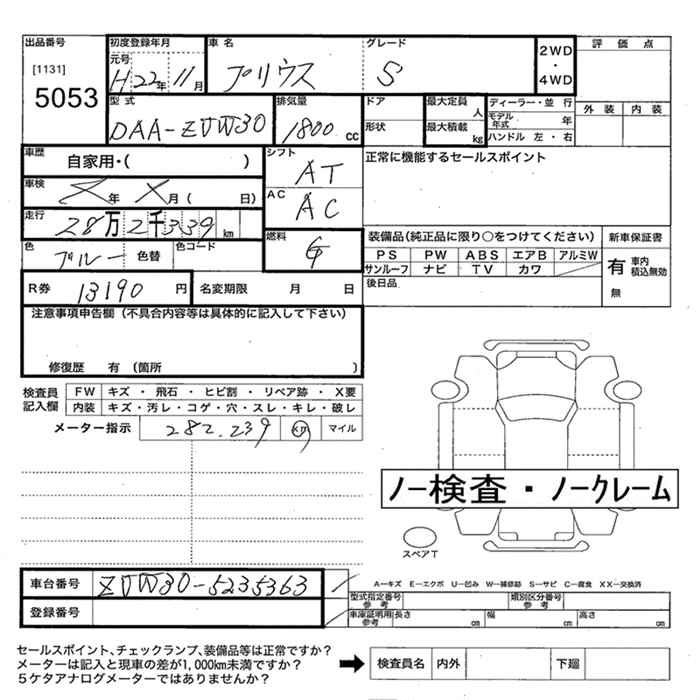 出品番号 初度登録年月 車名 グレード 2WD・4WD 評価点
[1131] 元号
5053 H22年11月 プリウス S
型式 排気量 ドア 最大定員 人 ディーラー・並行 外装 内装
モデル年式 年
DAA-ZVW30 1800cc 形状 最大積載 kg ハンドル 左・右
車歴 自家用・( ) シフト AT 正常に機能するセールスポイント
車検 年 月( 日) AC AC
走行 28万2千339km
燃料 装備品(純正品に限り○をつけてください) 新車保証書
色 ブルー 色替 色コード G PS PW ABS エアB アルミW 有 車内積込無効
サンルーフ ナビ TV カワ
R券 13190円 名変期限 月 日 後日品 無
注意事項申告欄(不具合内容等は具体的に記入して下さい)
修復歴 有(箇所 )
検査員記入欄 FW キズ・飛石・ヒビ割・リペア跡・X要
内装 キズ・汚レ・コゲ・穴・スレ・キレ・破レ
メーター指示 282.239 km マイル
ノー検査・ノークレーム
スペアT
車台番号 ZVW30-5235363 A-キズ E-エクボ U-凹み W-補修跡 S-サビ C-腐食 XX-交換済
型式指定番号 参考 類別区分番号 参考
登録番号 車庫証明用 参考 長さ cm 幅 cm 高さ cm
セールスポイント、チェックランプ、装備品等は正常ですか?
メーターは記入と現車の差が1,000km未満ですか? 検査員名 内外 下廻
5ケタアナログメーターではありませんか?